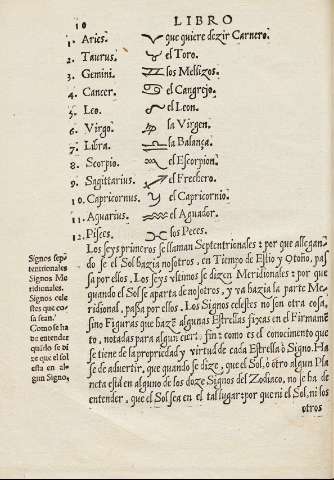 10 LIBRO
1. Aries. que quiere dezir Carnero.
2. Taurus. el Toro.
3. Gemini. los Mellizos.
4. Cancer. el Cangrejo.
5. Leo. el Leon.
6. Virgo. la Virgen.
7. Libra. la Balança.
8. Scorpio. el Escorpion.
9. Sagittarius. el Frechero.
10. Capricornus. el Capricornio.
11. Aquarius. el Aguador.
12. Pisces. los Peces.
Los seys primeros se llaman Septentrionales: por que allegan-
do se el Sol hazia nosotros, en Tiempo de Estio y Otoño, pas
sa por ellos. Los seys vltimos se dizen Meridionales: por que
quando el Sol se aparta de nosotros, y va hazia la parte Me-
ridional, passa por ellos. Los Signos celestes no son otra cosa,
sino Figuras que hazē algunas Estrellas fixas en el Firmamē
to, notadas para algun cierto fin: como es el conocimento que
se tiene de la propriedad y virtud de cada Estrella ò Signo. Ha
se de advertir, que quando se dize, que el Sol, ò otro algun Pla
neta está en alguno de los doze Signos del Zodiaco, no se ha de
entender, que el Sol sea en el tal lugar: por que ni el Sol, ni los
otros
Signos sep-
tentrionales
Signos Me
ridionales.
Signos cele
stes que co-
sa sean.
Como se ha
de entender
quādo se di
ze que el sol
esta en al-
gun Signo,